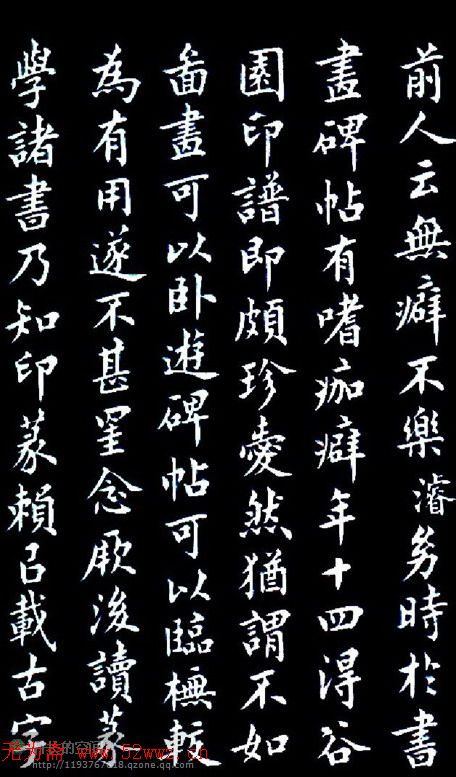 前人云無癖不樂濬㓜時於書
畫碑帖有嗜痂癖年十四得谷
園印譜即頗珍愛然猶謂不如
啚畫可以卧遊碑帖可以臨橅較
為有用遂不甚罣念厥後讀篆
學諸書乃知印篆賴㠯載古字
无为斋 www.52wwz.cn
的空间
http://1193767818.qzone.qq.com